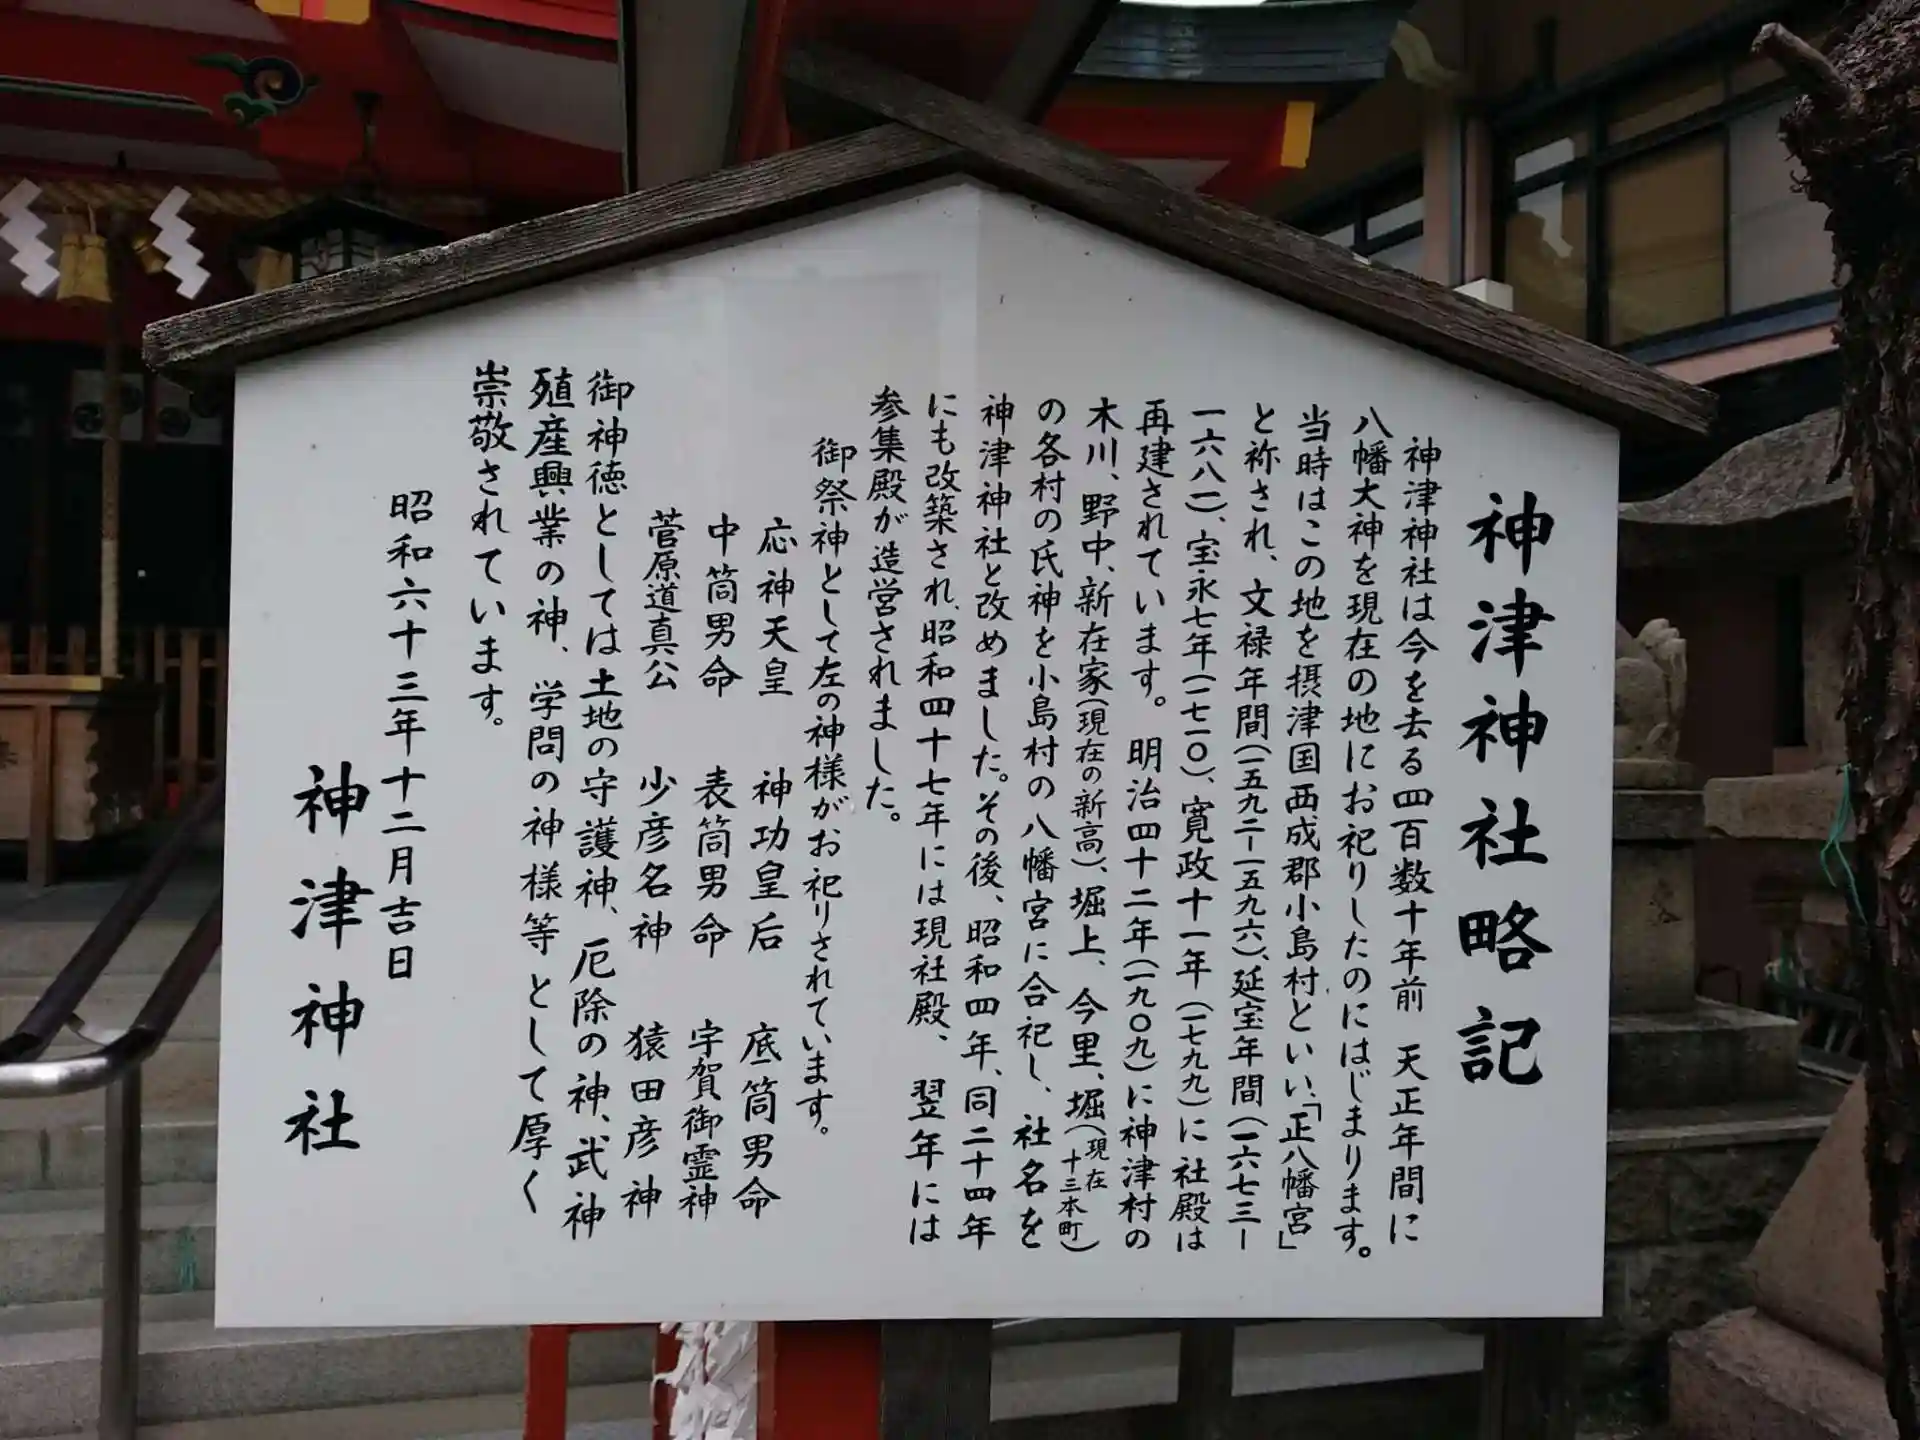 神津神社略記
神津神社は今を去る四百数十年前 天正年間に
八幡大神を現在の地にお祀りしたのにはじまります。
当時はこの地を摂津国西成郡小島村といい、「正八幡宮」
と祢され、文禄年間(一五九二ー一五九六)、延宝年間(一六七三ー
一六八一)、宝永七年(一七一〇)、寛政十一年(一七九九)に社殿は
再建されています。明治四十二年(一九〇九)に神津村の
木川、野中、新在家(現在の新高)、堀上、今里、堀(現在十三本町)
の各村の氏神を小島村の八幡宮に合祀し、社名を
神津神社と改めました。その後、昭和四年、同二十四年
にも改築され、昭和四十七年には現社殿、翌年には
参集殿が造営されました。
御祭神として左の神様がお祀りされています。
応神天皇 神功皇后 底筒男命
中筒男命 表筒男命 宇賀御霊神
菅原道真公 少彦名神 猿田彦神
御神徳としては土地の守護神、厄除の神、武神
殖産興業の神、学問の神様等として厚く
崇敬されています。
昭和六十三年十二月吉日
神津神社